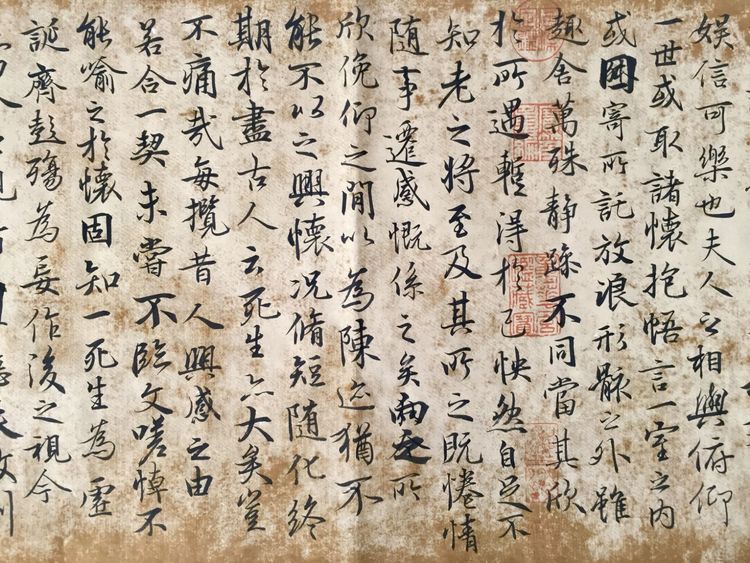 娱信可樂也夫人之相與俯仰
一世或取諸懷抱悟言一室之内
或因寄所託放浪形骸之外雖
趣舍萬殊静躁不同當其欣
於所遇暫得於己怏然自足不
知老之將至及其所之既惓情
随事遷感慨係之矣向之所
欣俛仰之閒以為陳迹猶不
能不以之興懷況脩短随化終
期於盡古人云死生亦大矣豈
不痛哉每攬昔人興感之由
若合一契未嘗不臨文嗟悼不
能喻之於懷固知一死生為虚
誕齊彭殤為妄作後之視今